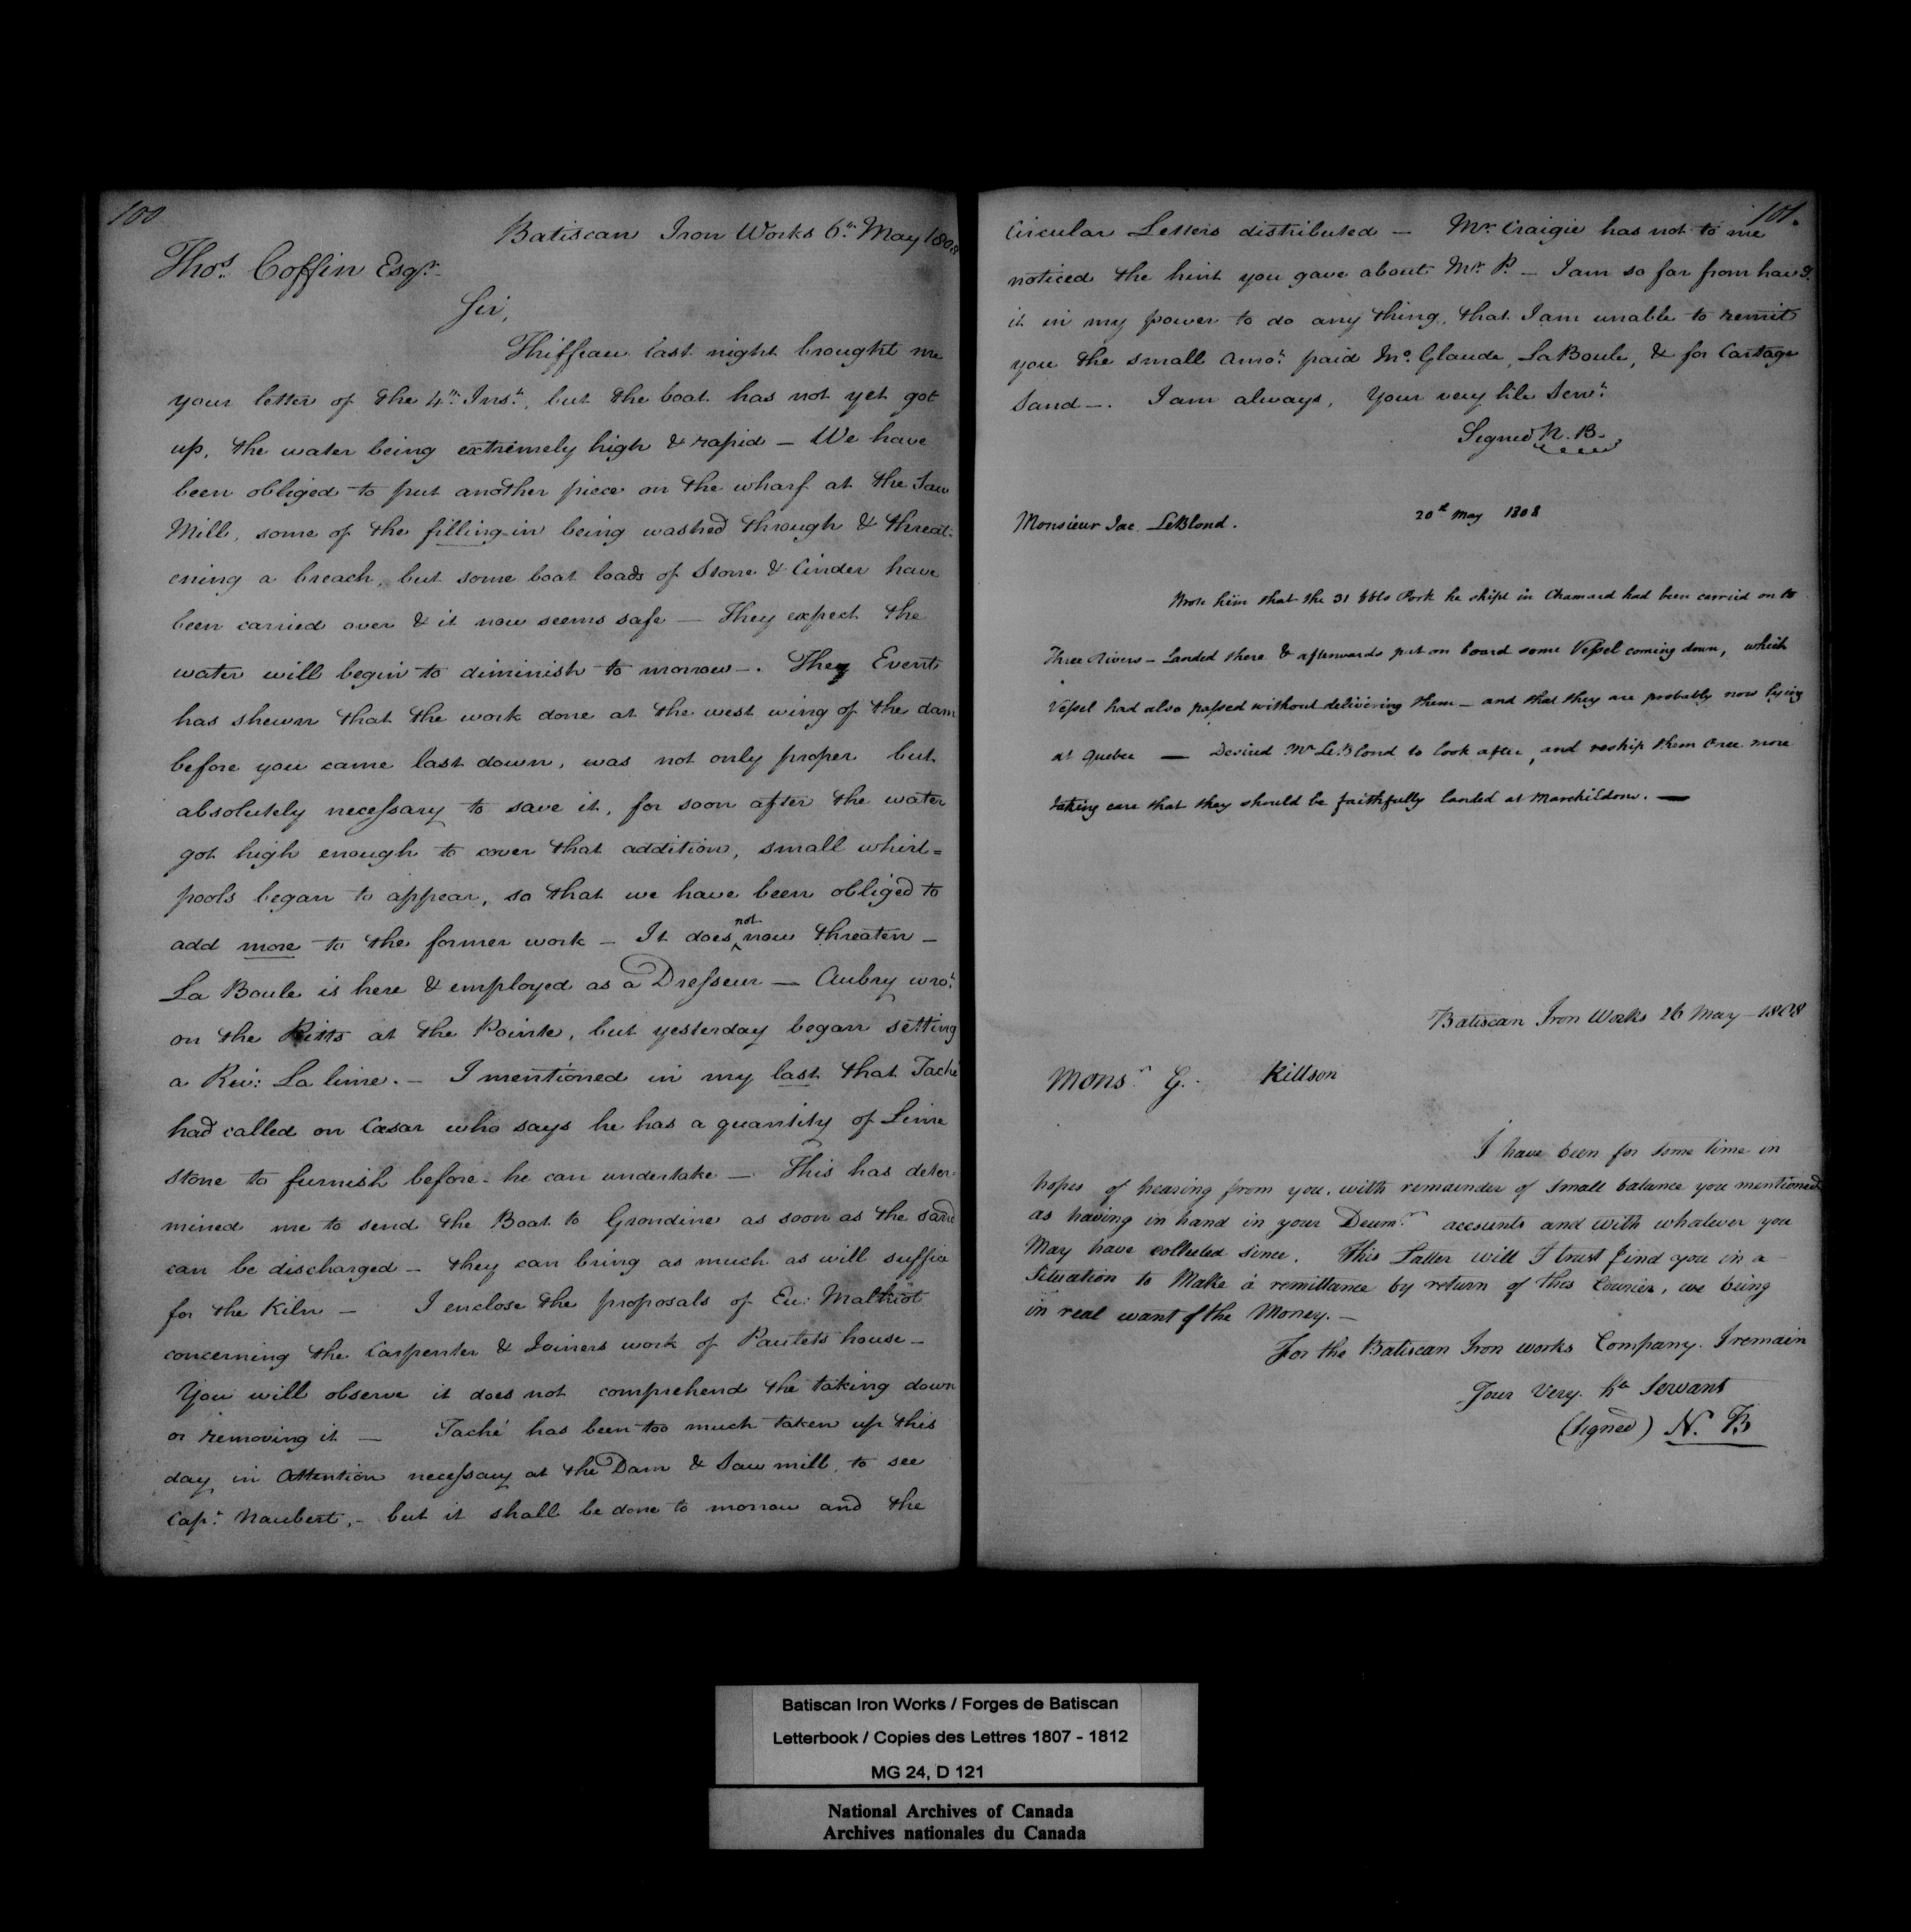 100
Batiscan Iron Works 6th May 1808
Thos Coffin Esqr
Sir,
Thiffeau last night brought me
your letter of the 4th Inst, but the boat has not yet got
up, the water being extremely high & rapid — We have
been obliged to put another piece on the wharf at the Saw
Mill, some of the filling-in being washed through & threat-
ening a breach, but some boat loads of Stone & Cinder have
been carried over & it now seems safe — They expect the
water will begin to diminish to morrow —. They Event
has shewn that the work done at the west wing of the dam
before you came last down, was not only proper but
absolutely necessary to save it, for soon after the water
got high enough to cover that addition, small whirl=
pools began to appear, so that we have been obliged to
add more to the former work — It does not now threaten —
La Boule is here & employed as a Dresseur — Aubry wrot
on the Pitts at the Pointe, but yesterday began setting
a Rei: La lime. — I mentioned in my last that Taché
had called on Cæsar who says he has a quantity of Lime
stone to furnish before he can undertake — This has deter=
mined me to send the Boat to Grondine as soon as the sand
can be discharged — they can bring as much as will suffice
for the Kiln — I enclose the proposals of Eu: Malhiot
concerning the Carpenter & Joiners work of Pautets house —
You will observe it does not comprehend the taking down
or removing it — Taché has been too much taken up this
day in Attention necessary at the Dam & Saw mill, to see
Capt Naubert, — but it shall be done to morrow and the
101.
Circular Letters distributed — Mr Craigie has not to me
noticed the hint you gave about Mr P. — I am so far from havg
it in my power to do any thing, that I am unable to remit
you the small Amot paid Mo Glaude, LaBoule, & for Cartage
Sand —. I am always, Your very hble Servt
Signed N. B.
Monsieur Jac LeBlond. 20th May 1808
Wrote him that the 31 bbls Pork he shipt in Chamard had been carried on to
Three Rivers — Landed there & afterwards put on board some Vessel coming down, which
Vessel had also passed without delivering them — and that they are probably now lying
at Quebec — Desired Mr LeBlond to look after, and reship them once more
taking care that they should be faithfully landed at Marchildons. —
Batiscan Iron Works 26 May — 1808
Monsr G. Killson
I have been for some time in
hopes of hearing from you, with remainder of small balance you mentioned
as having in hand in your Decemr accounts and with whatever you
May have collected since. This Latter will I trust find you in a
Situation to Make a remittance by return of this Courier, we being
in real want of the Money. —
For the Batiscan Iron works Company. I remain
Your Very. he Servant
(Signed) N. B
Batiscan Iron Works / Forges de Batiscan
Letterbook / Copies des Lettres 1807 - 1812
MG 24, D 121
National Archives of Canada
Archives nationales du Canada